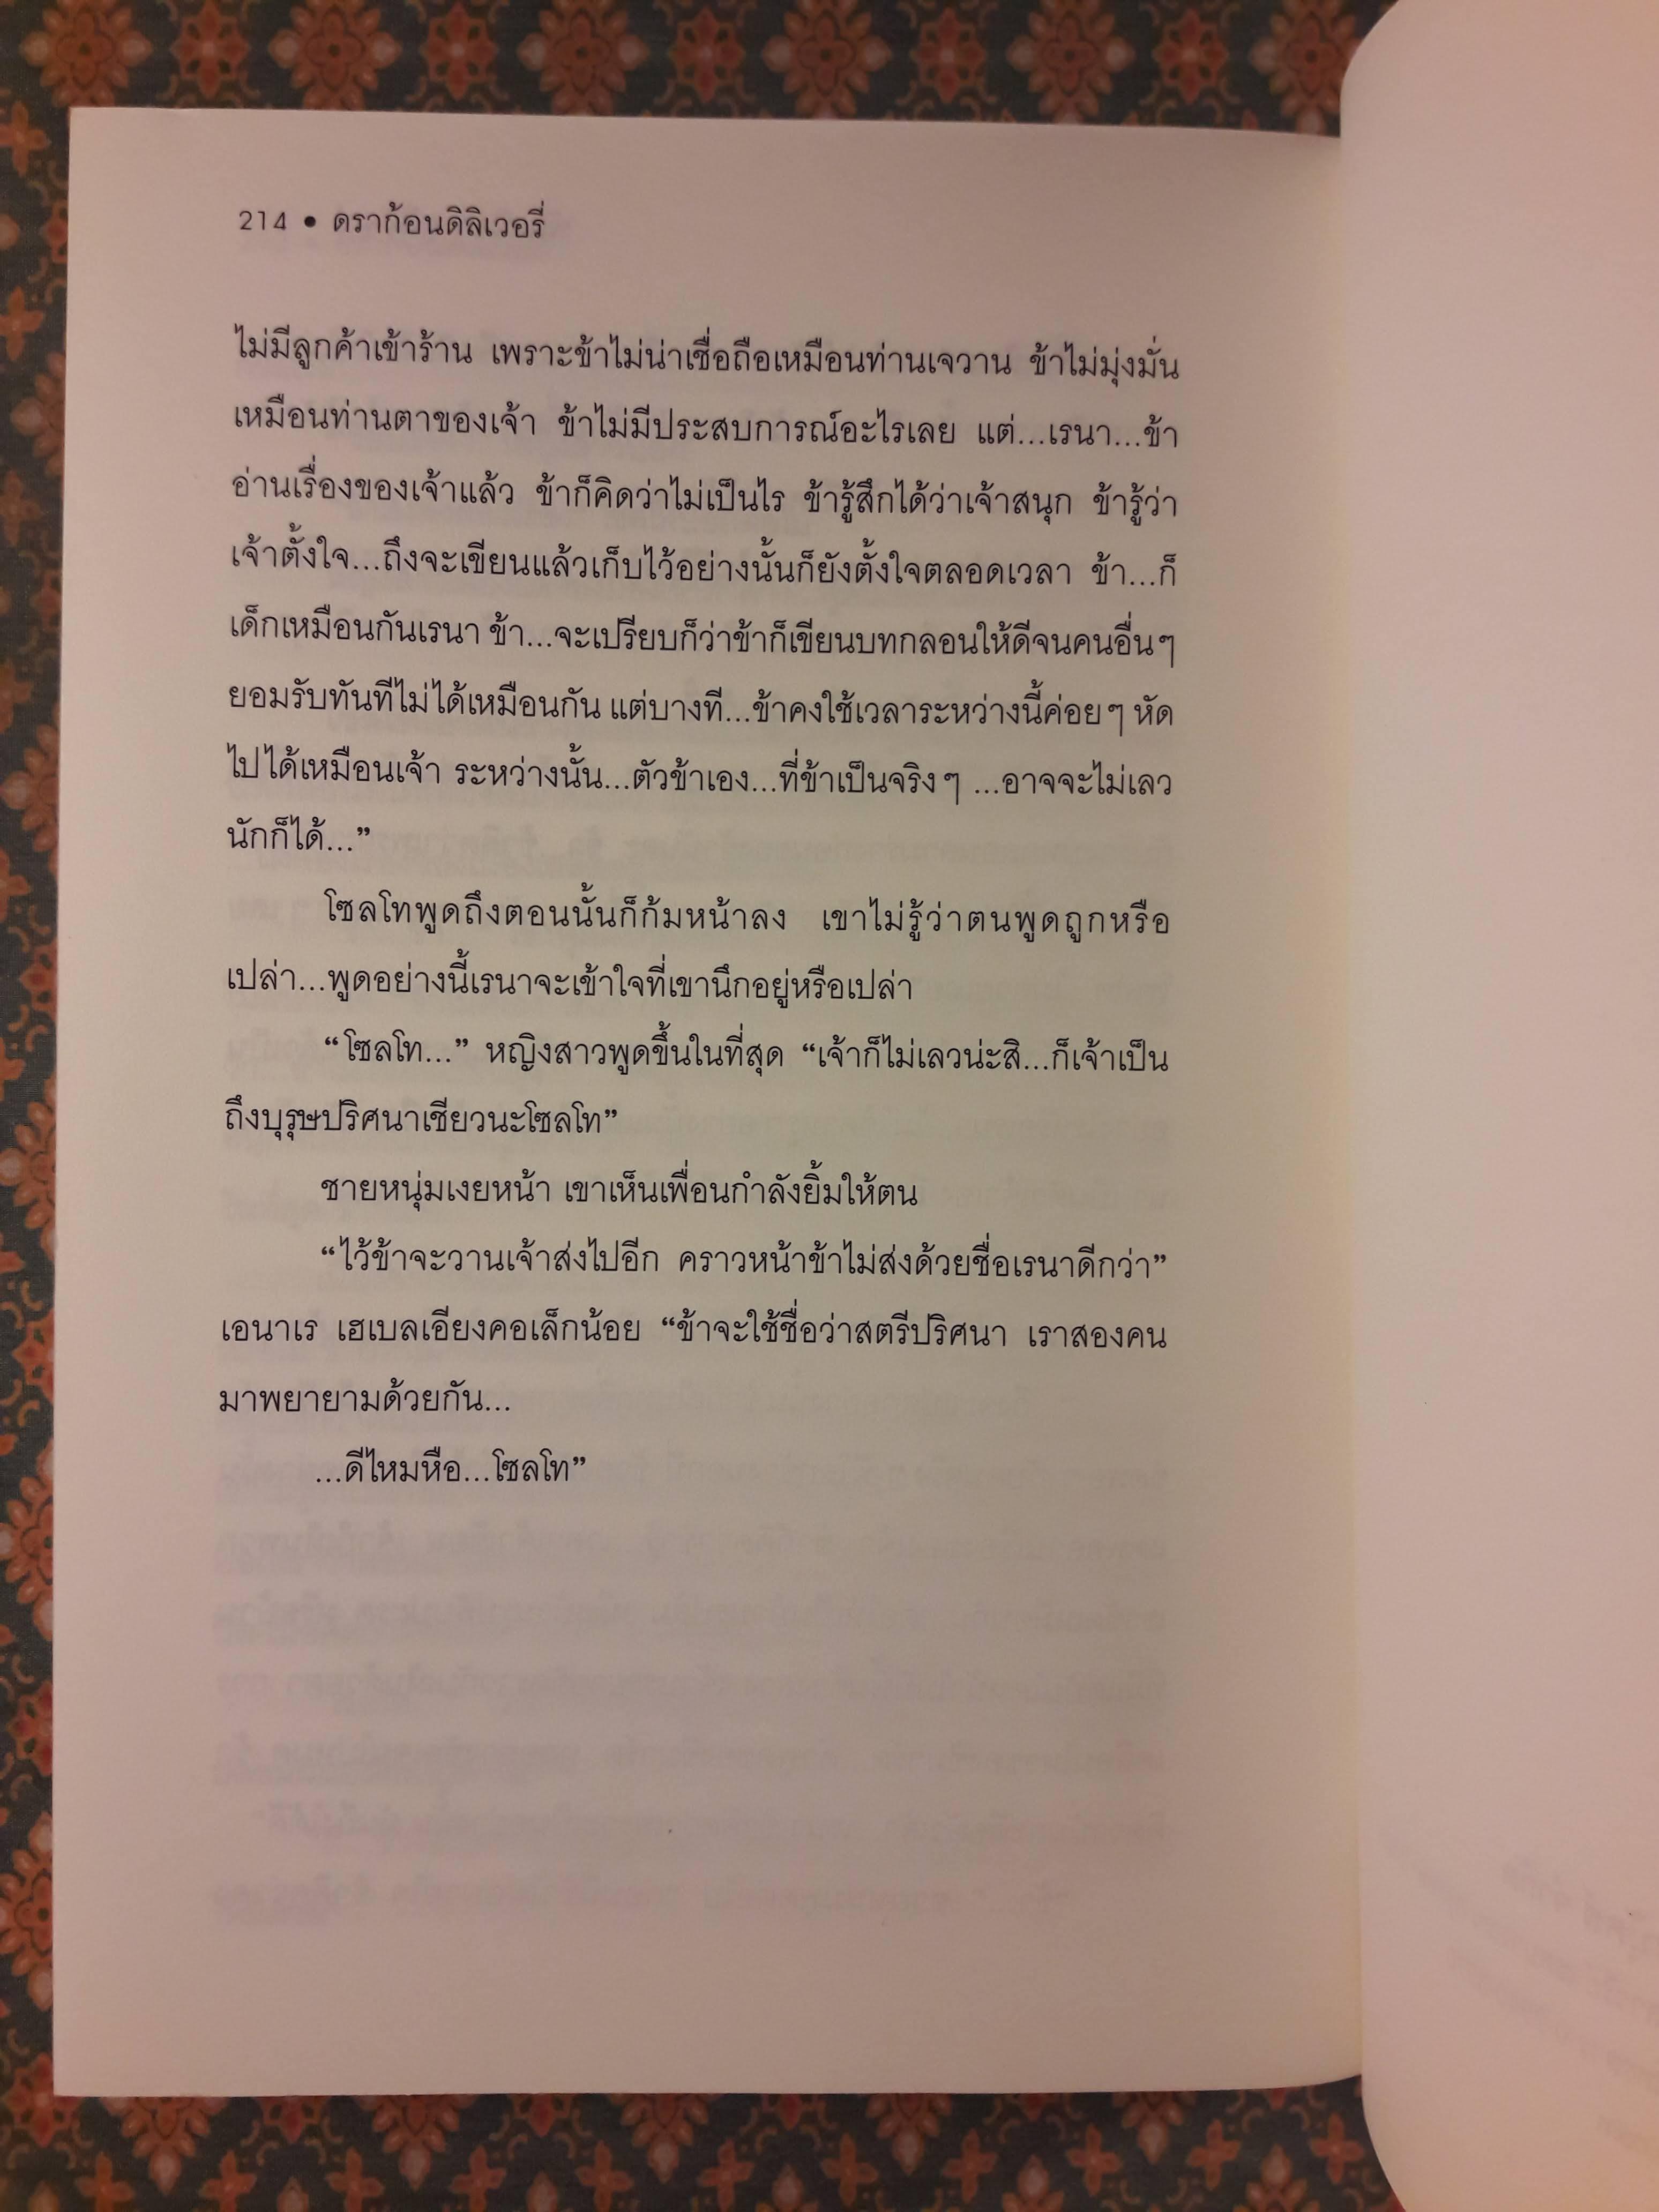 214 • ดราก้อนดิลิเวอรี่
ไม่มีลูกค้าเข้าร้าน เพราะข้าไม่น่าเชื่อถือเหมือนท่านเจวาน ข้าไม่มุ่งมั่น
เหมือนท่านตาของเจ้า ข้าไม่มีประสบการณ์อะไรเลย แต่...เรนา...ข้า
อ่านเรื่องของเจ้าแล้ว ข้าก็คิดว่าไม่เป็นไร ข้ารู้สึกได้ว่าเจ้าสนุก ข้ารู้ว่า
เจ้าตั้งใจ...ถึงจะเขียนแล้วเก็บไว้อย่างนั้นก็ยังตั้งใจตลอดเวลา ข้า...ก็
เด็กเหมือนกันเรนา ข้า...จะเปรียบก็ว่าข้าก็เขียนบทกลอนให้ดีจนคนอื่นๆ
ยอมรับทันทีไม่ได้เหมือนกัน แต่บางที...ข้าคงใช้เวลาระหว่างนี้ค่อยๆ หัด
ไปได้เหมือนเจ้า ระหว่างนั้น...ตัวข้าเอง...ที่ข้าเป็นจริงๆ ...อาจจะไม่เลว
นักก็ได้...”
โซลโทพูดถึงตอนนั้นก็ก้มหน้าลง เขาไม่รู้ว่าตนพูดถูกหรือ
เปล่า...พูดอย่างนี้เรนาจะเข้าใจที่เขานึกอยู่หรือเปล่า
“โซลโท...” หญิงสาวพูดขึ้นในที่สุด “เจ้าก็ไม่เลวน่ะสิ...ก็เจ้าเป็น
ถึงบุรุษปริศนาเชียวนะโซลโท”
ชายหนุ่มเงยหน้า เขาเห็นเพื่อนกำลังยิ้มให้ตน
“ไว้ข้าจะวานเจ้าส่งไปอีก คราวหน้าข้าไม่ส่งด้วยชื่อเรนาดีกว่า”
เอนาเร เฮเบลเอียงคอเล็กน้อย “ข้าจะใช้ชื่อว่าสตรีปริศนา เราสองคน
มาพยายามด้วยกัน...
...ดีไหมหือ...โซลโท”